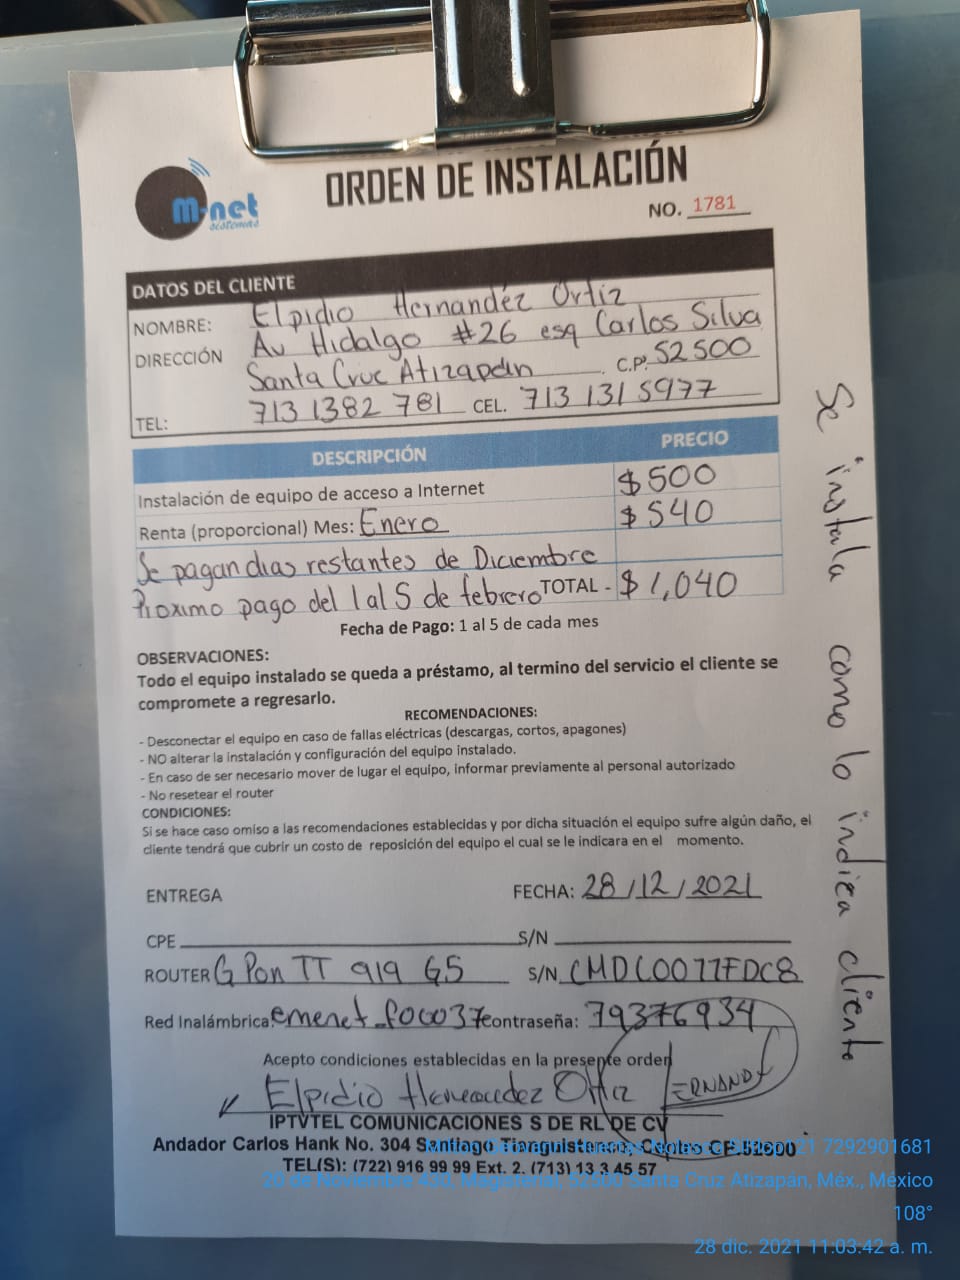 M-net
sistemas
ORDEN DE INSTALACIÓN
NO. 1781
DATOS DEL CLIENTE
NOMBRE: Elpidio Hernandéz Ortiz
DIRECCIÓN Av Hidalgo #26 esq Carlos Silva
Santa Cruz Atizapán C.P. 52500
TEL: 713 1382 781 CEL. 713 131 5977
DESCRIPCIÓN PRECIO
Instalación de equipo de acceso a Internet $500
Renta (proporcional) Mes: Enero $540
Se pagan dias restantes de Diciembre
Proximo pago del 1 al 5 de febrero TOTAL - $1,040
Fecha de Pago: 1 al 5 de cada mes
OBSERVACIONES:
Todo el equipo instalado se queda a préstamo, al termino del servicio el cliente se
compromete a regresarlo.
RECOMENDACIONES:
- Desconectar el equipo en caso de fallas eléctricas (descargas, cortos, apagones)
- NO alterar la instalación y configuración del equipo instalado.
- En caso de ser necesario mover de lugar el equipo, informar previamente al personal autorizado
- No resetear el router
CONDICIONES:
Si se hace caso omiso a las recomendaciones establecidas y por dicha situación el equipo sufre algún daño, el
cliente tendrá que cubrir un costo de reposición del equipo el cual se le indicara en el momento.
ENTREGA FECHA: 28/12/2021
CPE S/N
ROUTER G Pon TT 919 G5 S/N CMDC0077FDC8
Red Inalámbrica: emenet_f00037 Contraseña: 79376934
Acepto condiciones establecidas en la presente orden
Elpidio Hernandez Ortiz
IPTVTEL COMUNICACIONES S DE RL DE CV
Andador Carlos Hank No. 304 Santiago Tianguistenco CP 52600
TEL(S): (722) 916 99 99 Ext. 2. (713) 13 3 45 57
Se instala como lo indica cliente
7292901681
20 de Noviembre 430, Magisterial, 52500 Santa Cruz Atizapán, Méx., México
108°
28 dic. 2021 11:03:42 a. m.